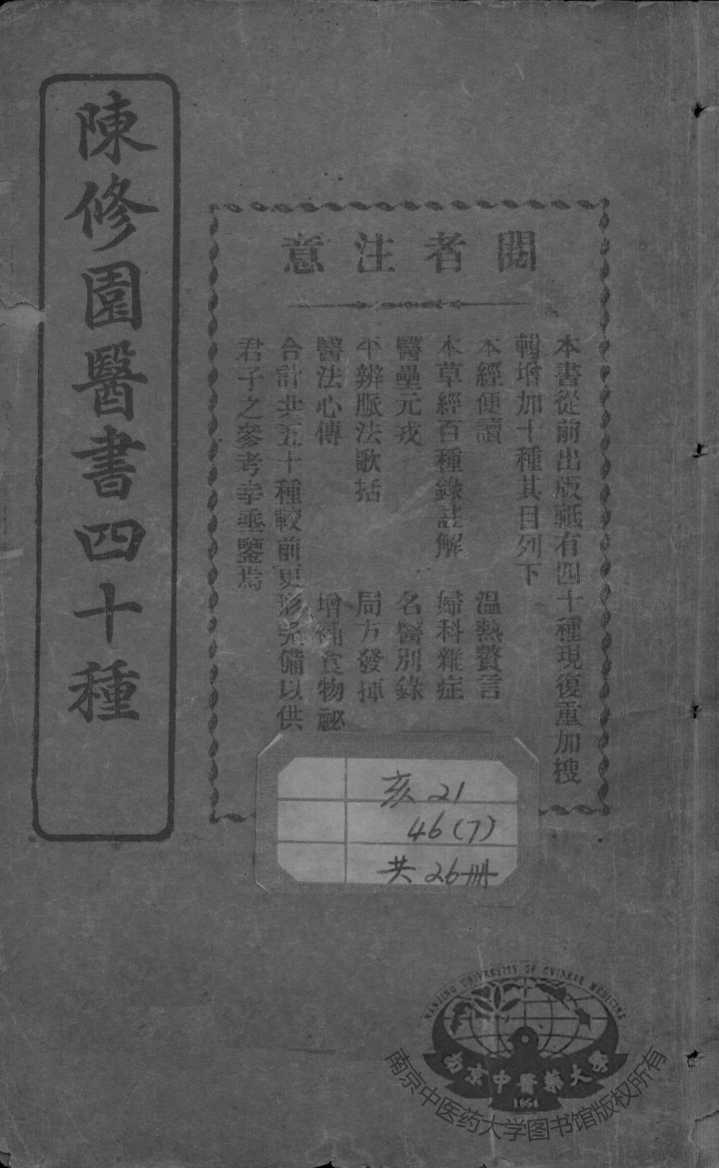 陳修園醫書四十種
閱者注意
本書從前出版祗有四十種現復重加搜
輯增加十種其目列下
本經便讀　溫熱贅言
本草經百種錄註解　婦科雜症
醫壘元戎　名醫別錄
平辨脈法歌括　局方發揮
醫法心傳　增補食物祕
合計共五十種較前更形完備以供
君子之參考幸垂鑒焉
亥21
46(7)
共26冊
NANJING UNIVERSITY OF CHINESE MEDICINE
南京中醫藥大學
1954
南京中医药大学图书馆版权所有